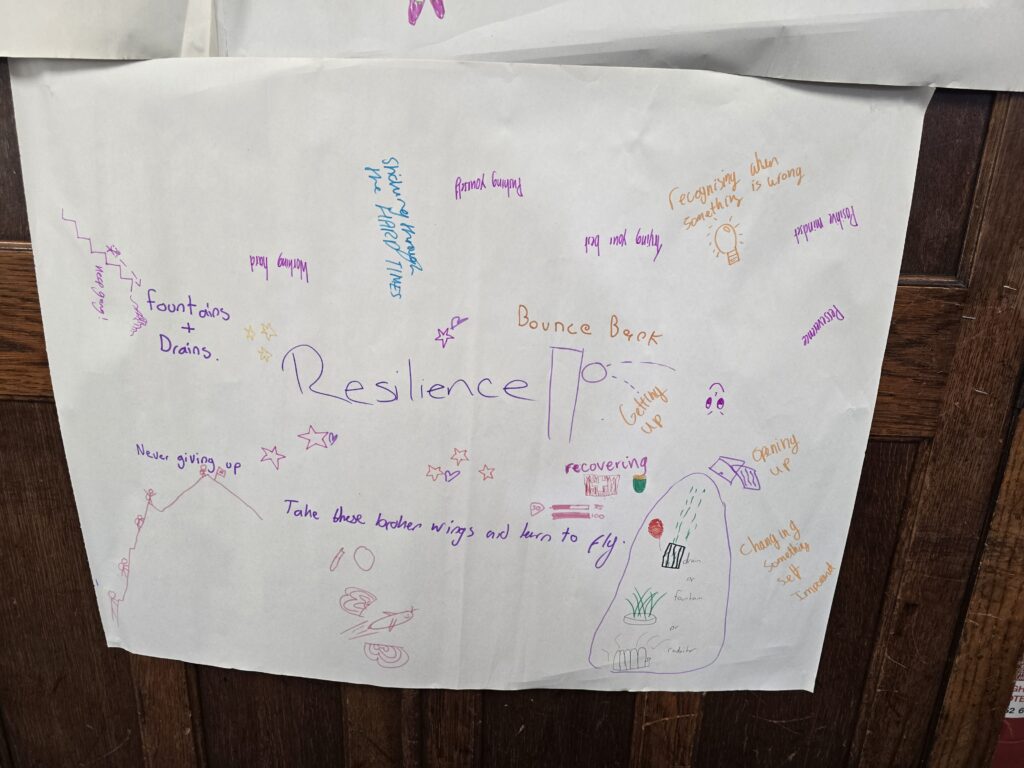 Sticking through
the HARD TIMES
Pushing yourself
recognising when
something is wrong
Trying your best
Positive mindset
Working hard
Keep going!
Fountains
+
Drains.
Bounce Back
Resilience
Getting
up
Never giving up
recovering
Opening
up
Take these broken wings and learn to fly.
100
Changing
something
self
drain
or
fountain
or
radiator